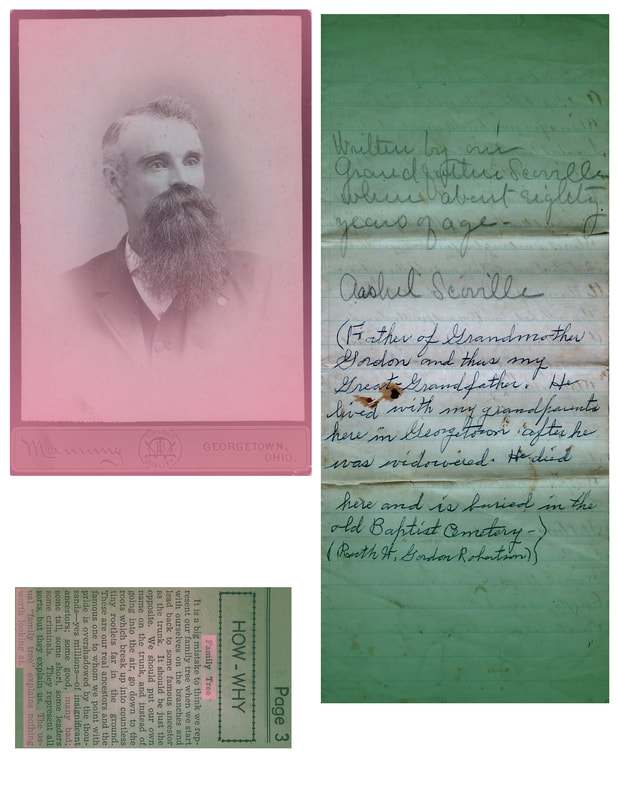 Manning
GEORGETOWN,
OHIO.
Written by our
Grandfather Scoville
when about eighty
years of age -
Aashel Scoville
(Father of Grandmother
Gordon and thus my
Great-Grandfather. He
lived with my grandparents
here in Georgetown after he
was widowered. He died
here and is buried in the
old Baptist Cemetery-)
(Ruth H. Gordon Robertson)
Page 3
HOW - WHY
Family Tree
It is a big mistake to think we rep-
resent our family tree when we start
with ourselves on the branches and
lead back to some famous ancestor
as the trunk. It should be just the
opposite. We should put our own
name on the trunk, and instead of
going into the air, go down to the
roots which break up into countless
tiny rootlets far in the ground.
These are our real ancestors and the
famous one to whom we point with
pride is overshadowed by the thou-
sands—yes millions—of insignificant
ancestors; some good, many bad;
some tall, some short, some leaders
some criminals. They represent all
sorts, but they explain us. The us-
ual "family tree" explains nothing
worth looking at.